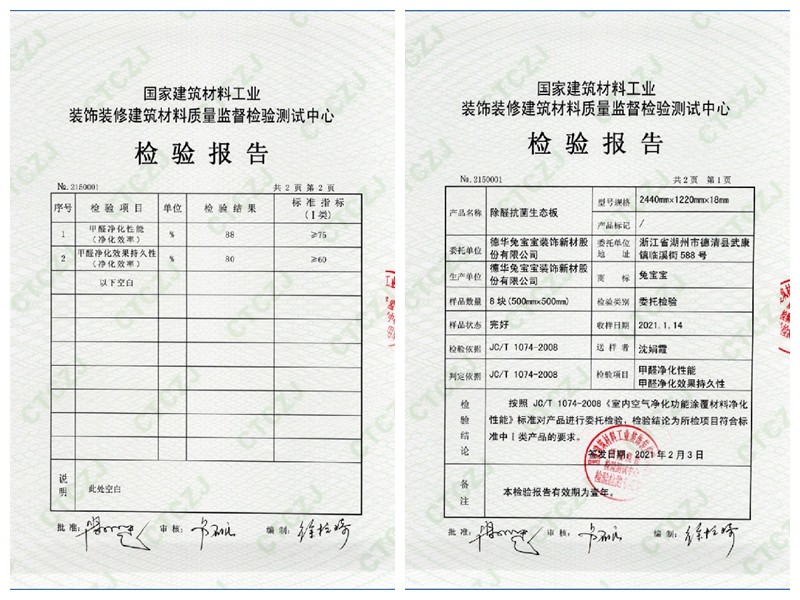 国家建筑材料工业
装饰装修建筑材料质量监督检验测试中心
检验报告
№.2150001
共 2 页 第 2 页
序号 检验项目 单位 检验结果 标准指标（Ⅰ类）
1 甲醛净化性能（净化效率） % 88 ≥75
2 甲醛净化效果持久性（净化效率） % 80 ≥60
以下空白
说明 此处空白
批准: 审核: 编制:
国家建筑材料工业
装饰装修建筑材料质量监督检验测试中心
检验报告
№.2150001
共 2 页 第 1 页
产品名称 除醛抗菌生态板 型号规格 2440mm×1220mm×18mm
产品标记 /
委托单位 德华兔宝宝装饰新材股份有限公司 委托单位地址 浙江省湖州市德清县武康镇临溪街 588 号
生产单位 德华兔宝宝装饰新材股份有限公司 商标 兔宝宝
样品数量 8 块(500mm×500mm) 检验类别 委托检验
样品状态 完好 收样日期 2021.1.14
检验依据 JC/T 1074-2008 送样者 沈娟霞
判定依据 JC/T 1074-2008 检验项目 甲醛净化性能
甲醛净化效果持久性
检验结论
按照 JC/T 1074-2008《室内空气净化功能涂覆材料净化
性能》标准对产品进行委托检验，检验结论为所检项目符合标
准中Ⅰ类产品的要求。
签发日期：2021 年 2 月 3 日
备注 本检验报告有效期为壹年。
批准: 审核: 编制:
CTCZJ